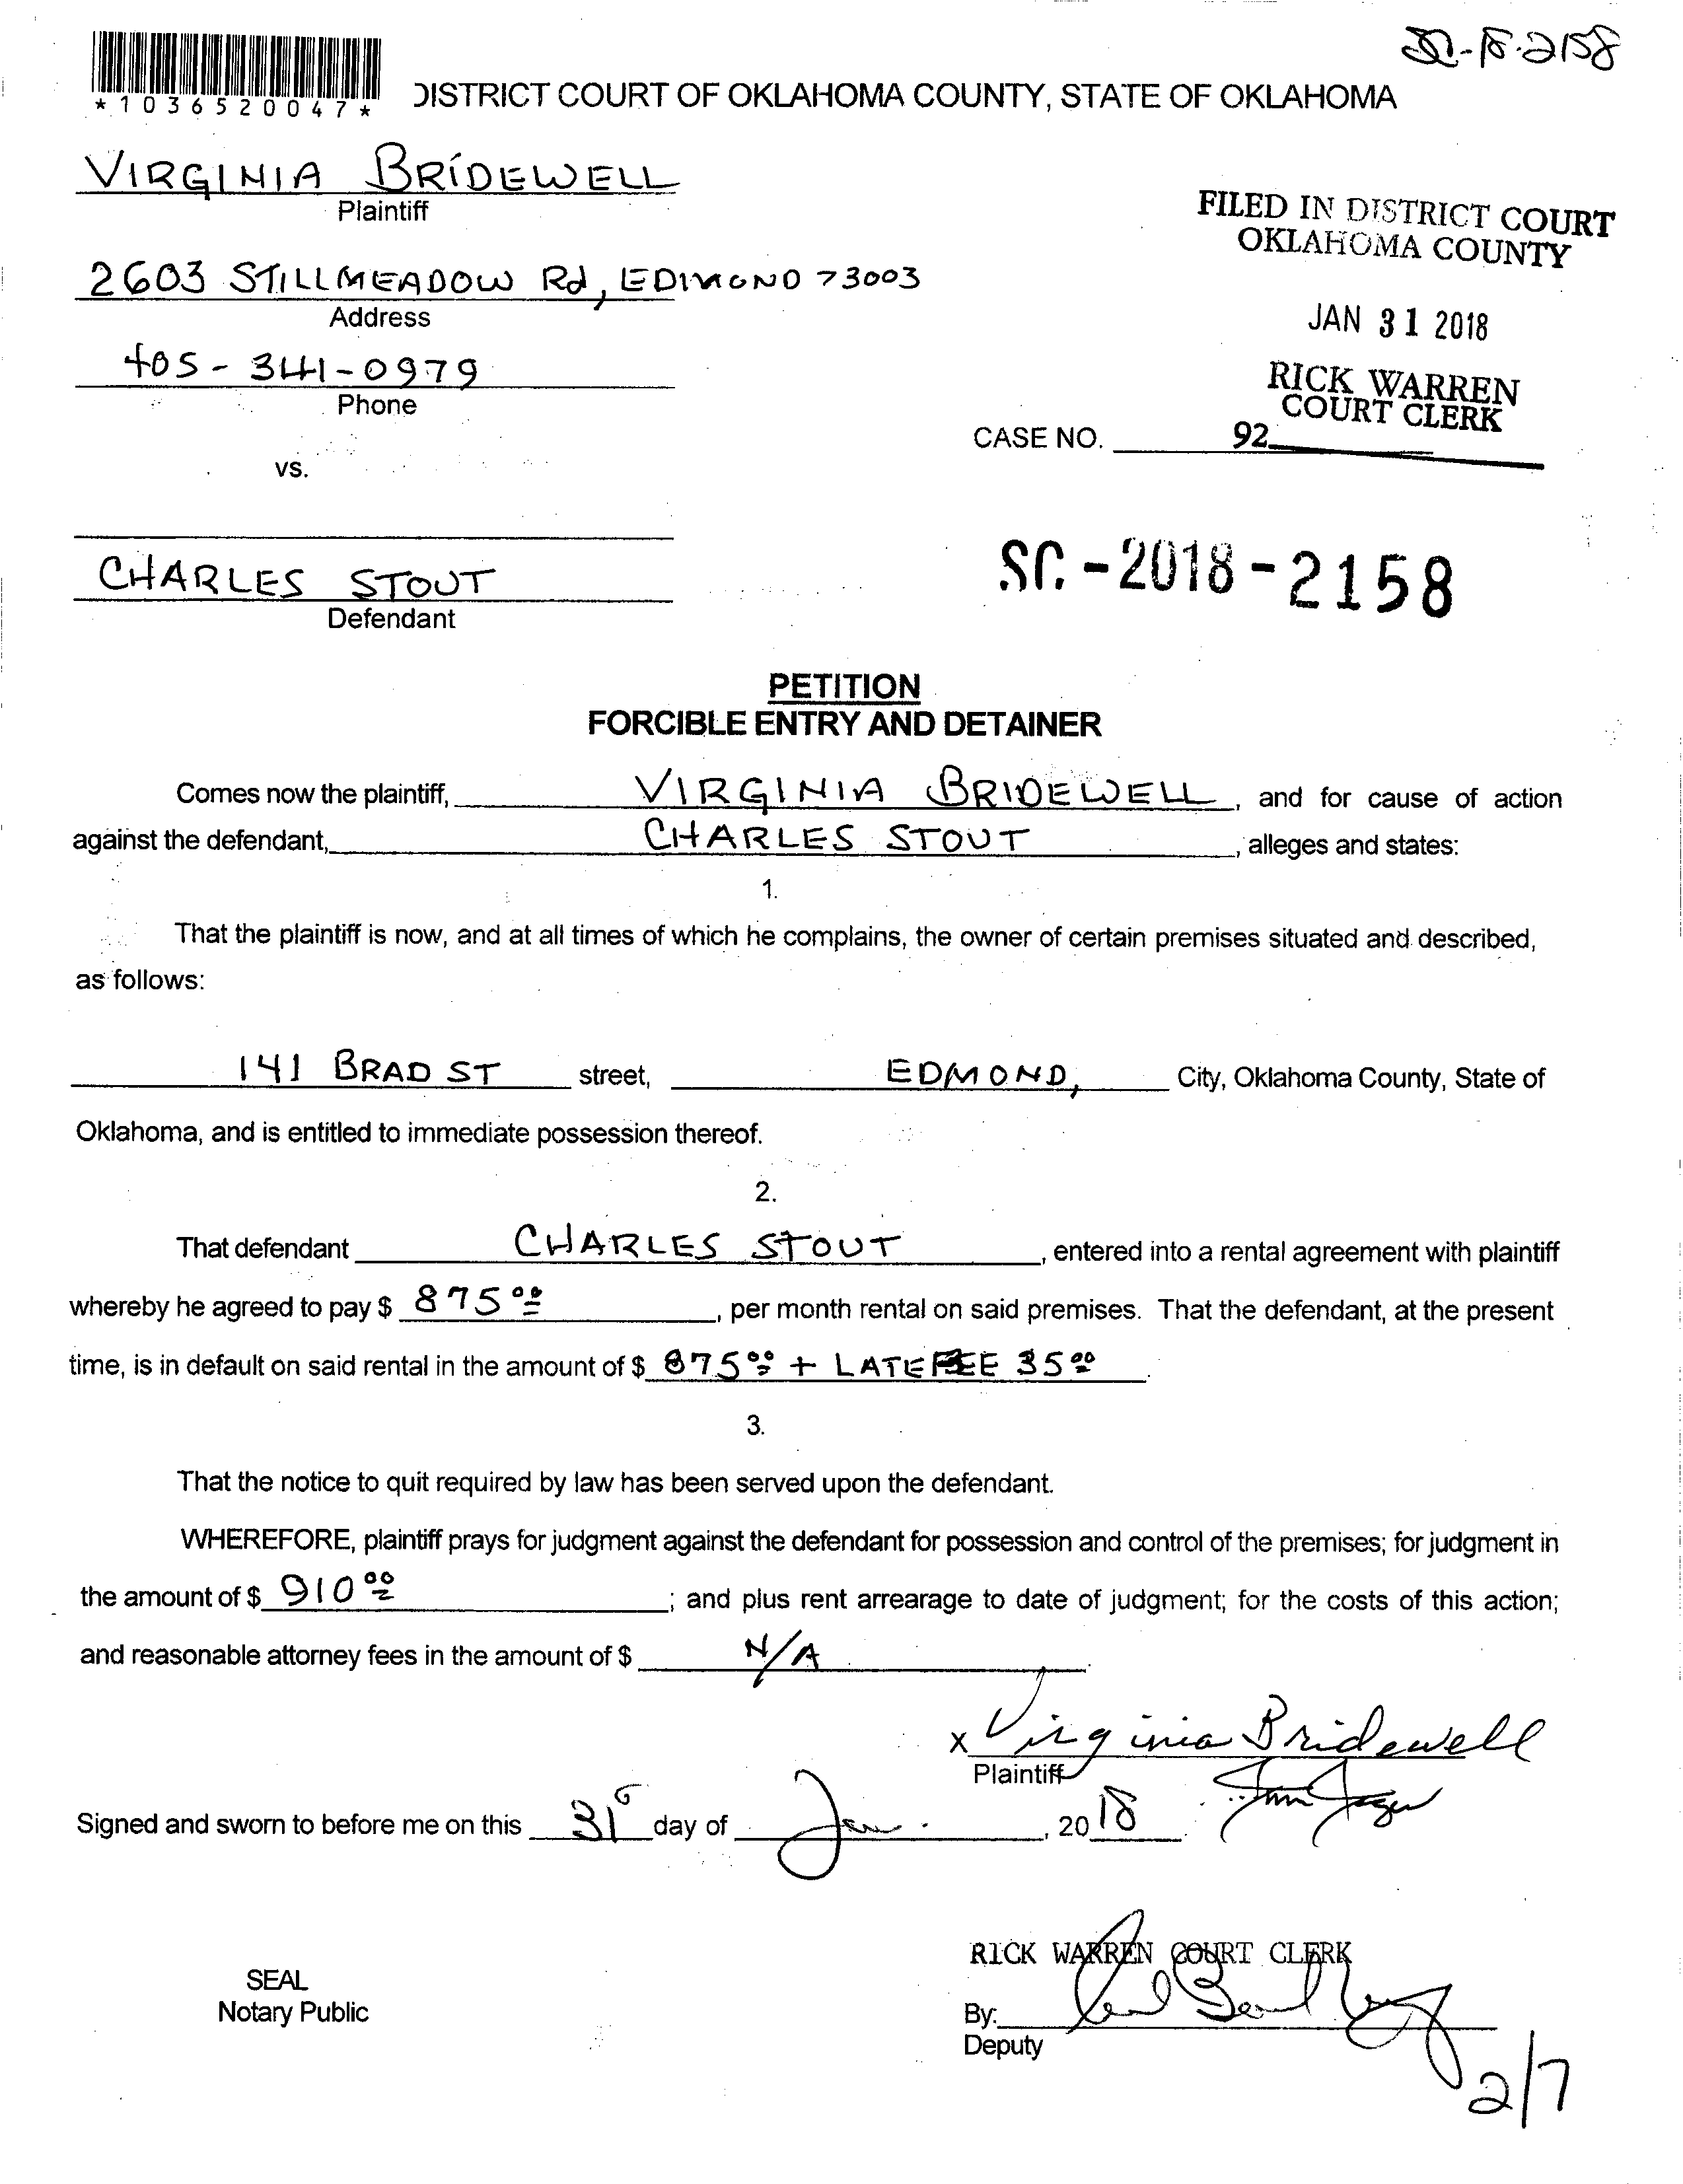 SC-18-2158
*1036520047*
DISTRICT COURT OF OKLAHOMA COUNTY, STATE OF OKLAHOMA
VIRGINIA BRIDEWELL
Plaintiff
FILED IN DISTRICT COURT
OKLAHOMA COUNTY
2603 STILLMEADOW Rd, EDMOND 73003
Address
JAN 31 2018
405-341-0979
Phone
RICK WARREN
COURT CLERK
CASE NO. 92
vs.
CHARLES STOUT
Defendant
SC-2018-2158
PETITION
FORCIBLE ENTRY AND DETAINER
Comes now the plaintiff, VIRGINIA BRIDEWELL, and for cause of action
against the defendant, CHARLES STOUT, alleges and states:
1.
That the plaintiff is now, and at all times of which he complains, the owner of certain premises situated and described,
as follows:
141 BRAD ST street, EDMOND, City, Oklahoma County, State of
Oklahoma, and is entitled to immediate possession thereof.
2.
That defendant CHARLES STOUT, entered into a rental agreement with plaintiff
whereby he agreed to pay $ 875 00, per month rental on said premises. That the defendant, at the present
time, is in default on said rental in the amount of $ 875 00 + LATE FEE 35 00.
3.
That the notice to quit required by law has been served upon the defendant.
WHEREFORE, plaintiff prays for judgment against the defendant for possession and control of the premises; for judgment in
the amount of $ 910 00; and plus rent arrearage to date of judgment; for the costs of this action;
and reasonable attorney fees in the amount of $ N/A.
x Virginia Bridewell
Plaintiff
Signed and sworn to before me on this 31 day of Jan., 2018.
RICK WARREN COURT CLERK
SEAL
Notary Public
By:
Deputy
2/7